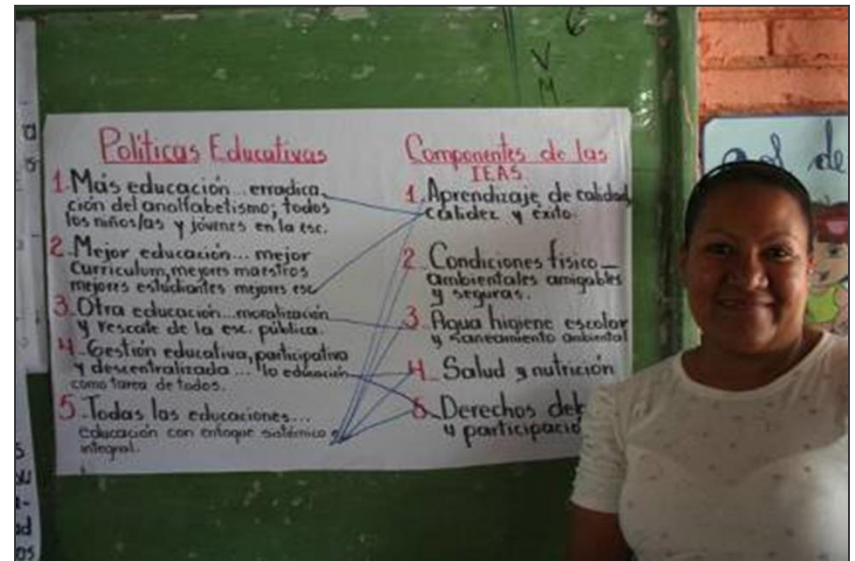 V 6
M
Políticas Educativas
1. Más educación... erradica_
ción del analfabetismo; todos
los niños/as y jóvenes en la esc.
2. Mejor educación... mejor
Curriculum, mejores maestros
mejores estudiantes mejores esc
3. Otra educación... moralización
y rescate de la esc. pública.
4. Gestión educativa, participativa
y descentralizada... la educación
como tarea de todos.
5. Todas las educaciones...
educación con enfoque sistémico e
integral.
Componentes de las
IEAS
1. Aprendizaje de calidad,
calidez y éxito.
2. Condiciones físico_
ambientales amigables
y seguras.
3. Agua higiene escolar
y saneamiento ambiental
4. Salud y nutrición
5. Derechos
y participacio
de